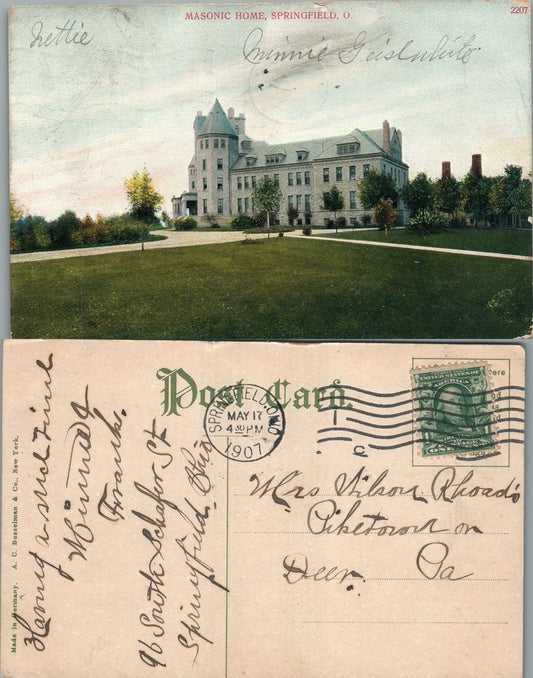 MASONIC HOME, SPRINGFIELD, O.
2207
Nettie
Minnie
Post Card.
Made in Germany. A. C. Bosselman & Co., New York.
Having a nice time
Minnie &
Frank.
96 South Schafer St
Springfield, Ohio
SPRINGFIELD, O.
MAY 17
4 30 PM
1907
UNITED STATES OF
Mrs Wilson Rhoads
Piketown
Deer, Pa